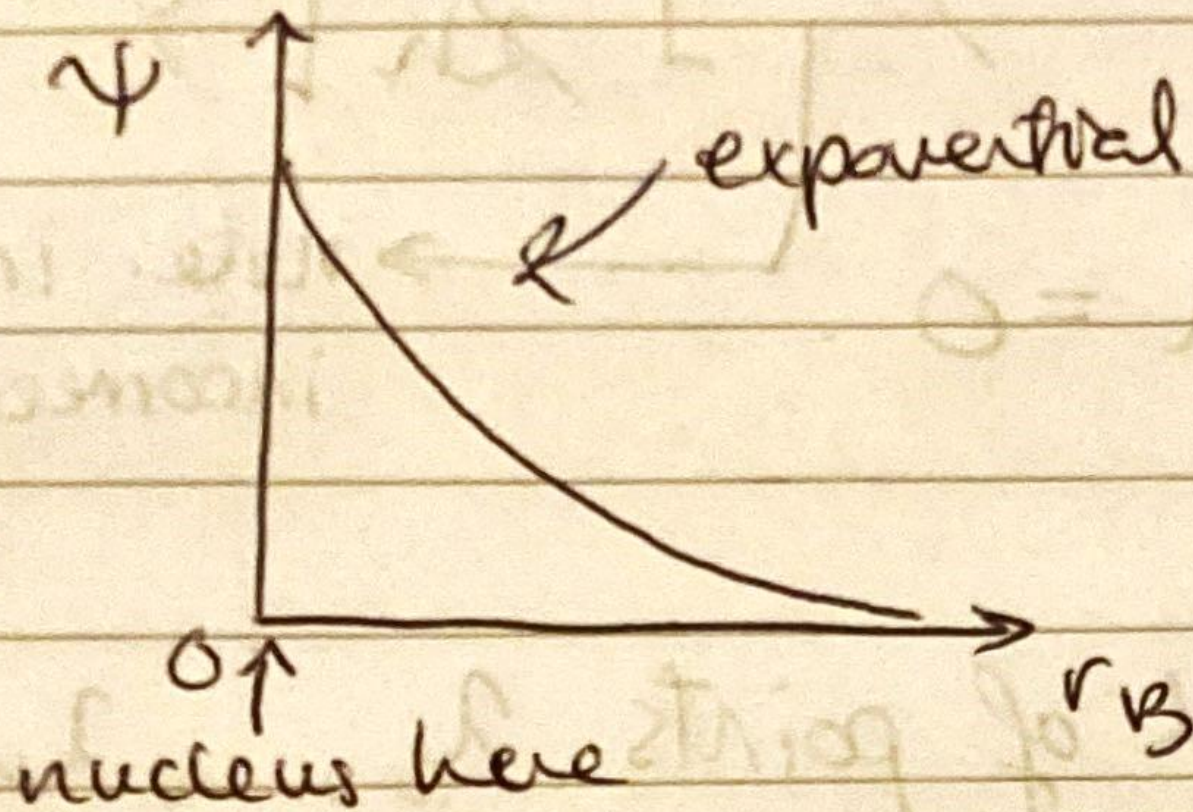 ψ
exponential
0
r_B
nucleus here